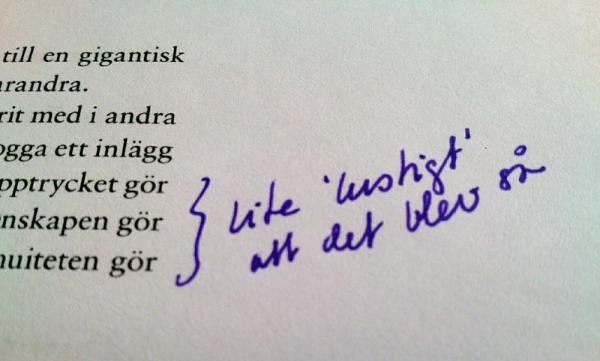 till en gigantisk
arandra.
rit med i andra
ogga ett inlägg
pptrycket gör
nskapen gör
nuiteten gör
lite 'lustigt'
att det blev så